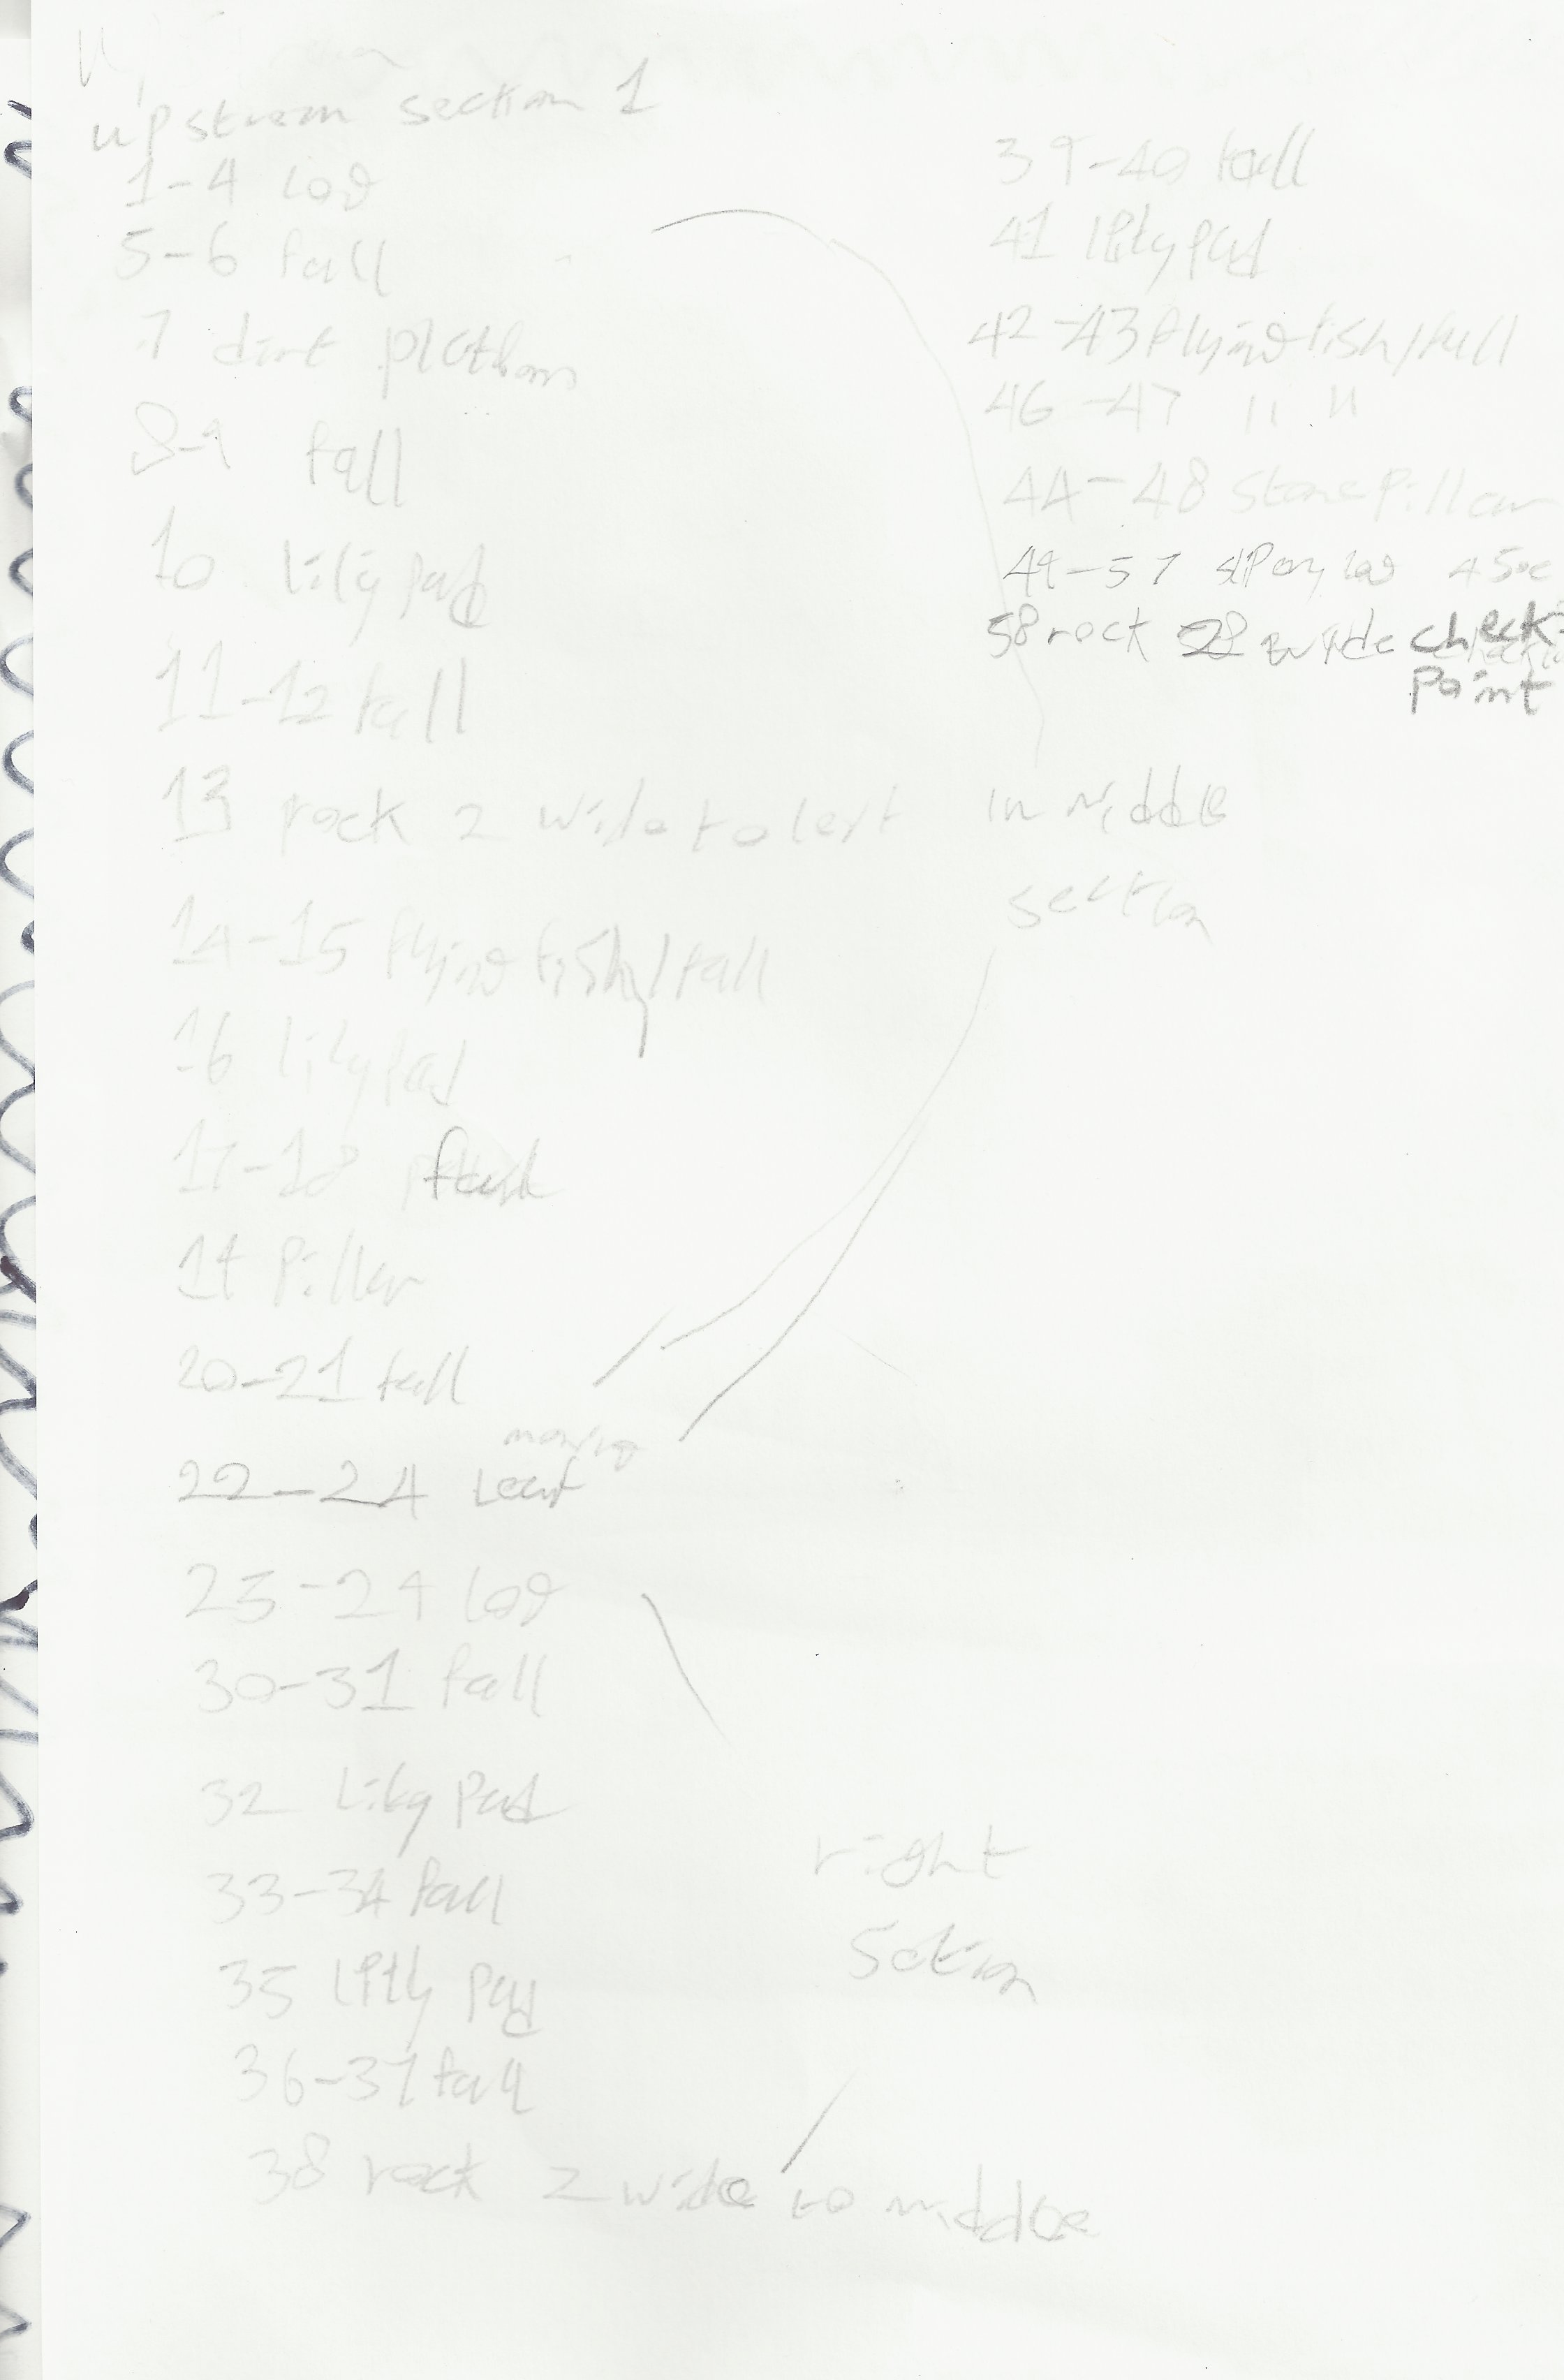 upstream section 1
1-4 log
5-6 fall
7 dirt platform
8-9 fall
10 lily pad
11-12 fall
13 rock 2 wide to left
14-15 flying fish/fall
16 lily pad
17-18
19 Pillar
20-21 fall
moving
22-24 Leaf
25-29 log
30-31 fall
32 Lily Pad
33-34 fall
35 lily pad
36-37 fall
38 rock 2 wide to middle
39-40 fall
41 lily pad
42-43 flying fish/fall
46-47 " "
44-48 stone Pillar
49-57 log
58 rock wide check
point
in middle
section
right
Section